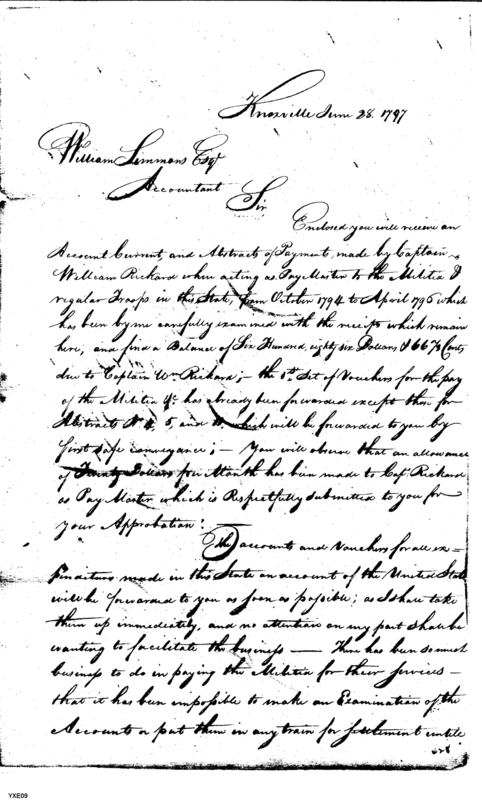 Knoxville June 28. 1797
William Simmons Esqr
Accountant
Sir
Enclosed you will receive an
Account Current, and Abstracts of Payment, made by Captain
William Rickard when acting as Pay Master to the Militia &
regular Troops in this State, from October 1794 to April 1796 which
has been by me carefully examined with the receipts which remain
here, and find a Balance of Six Hundred eighty six Dollars & 66⅔ Cents
due to Captain Wm Rickard; - the 1st Set of Vouchers for the pay
of the Militia &c. has already been forwarded except those for
Abstracts No 4, 5, and which will be forwarded to you by
first safe conveyance; - You will observe that an allowance
of Twenty Dollars per Month has been made to Capt Rickard
as Pay Master which is Respectfully submitted to you for
your Approbation.
The accounts and Vouchers for all ex=
penditures made in this State on account of the United States
will be forwarded to you as soon as possible; as I shall take
them up immediately, and no attention on my part shall be
wanting to facilitate the business — There has been so much
business to do in paying the Militia for their services -
that it has been impossible to make an Examination of the
Accounts or put them in any train for settlement untile
YXE09